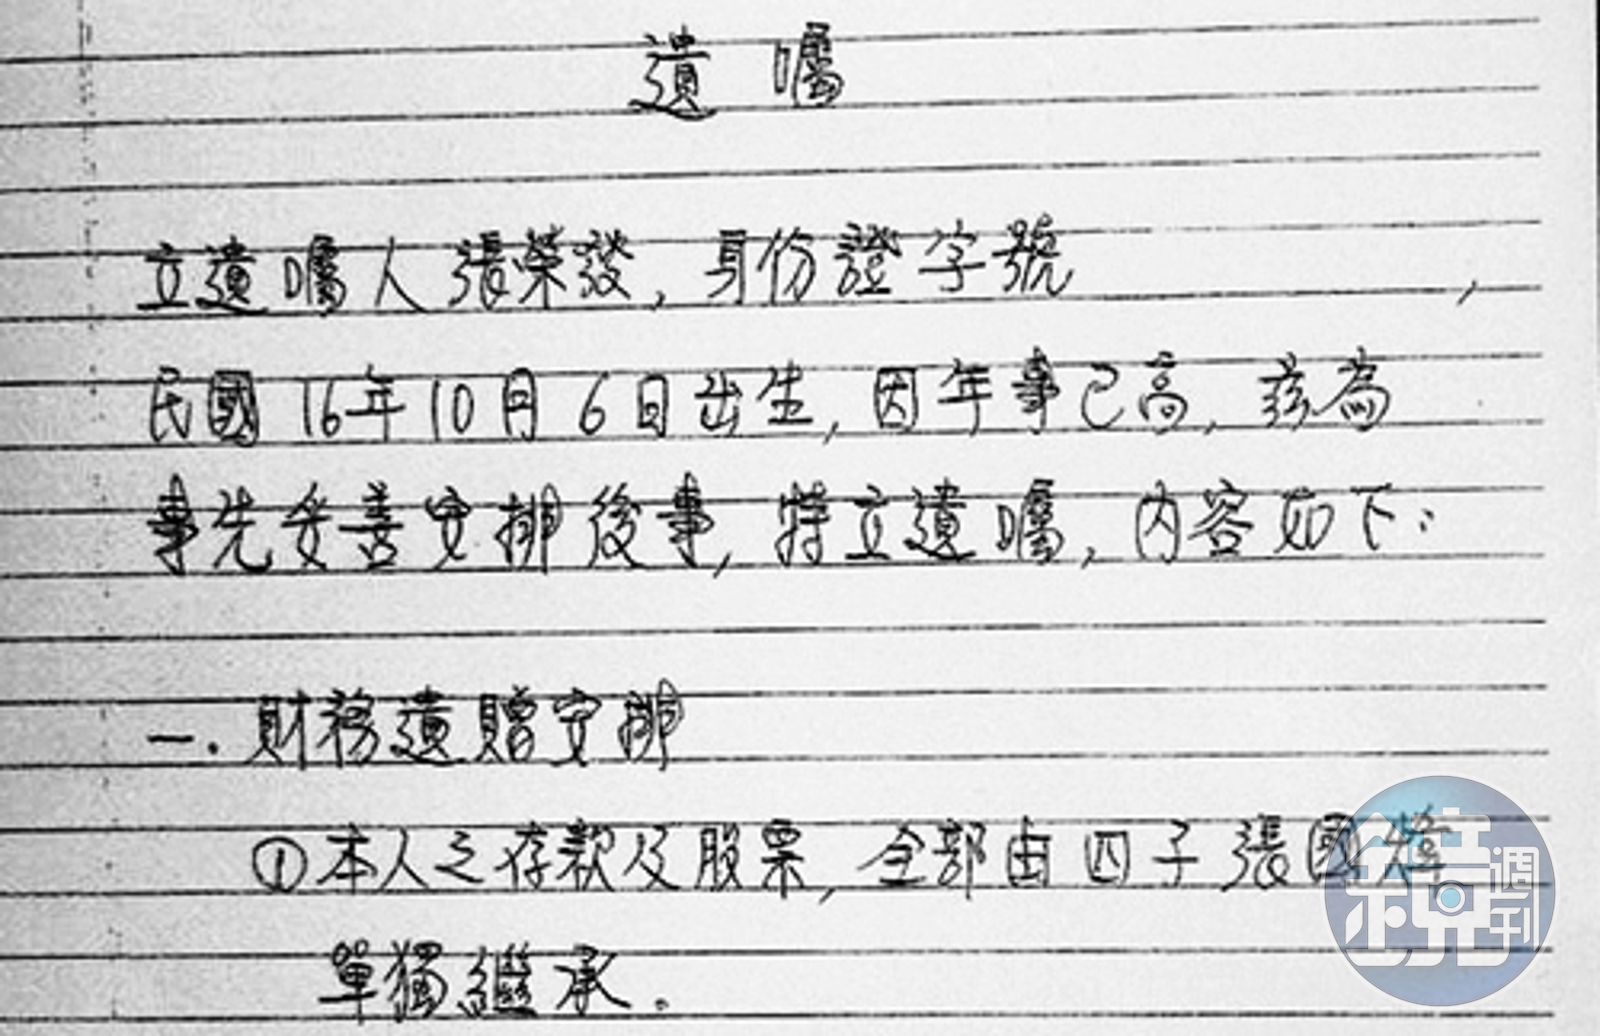 遺囑
立遺囑人張榮發，身份證字號　　　　，
民國16年10月6日出生，因年事已高，茲為
事先妥善安排後事，特立遺囑，內容如下：
一．財務遺贈安排
①本人之存款及股票，全部由四子張國煒
單獨繼承。
鏡週刊